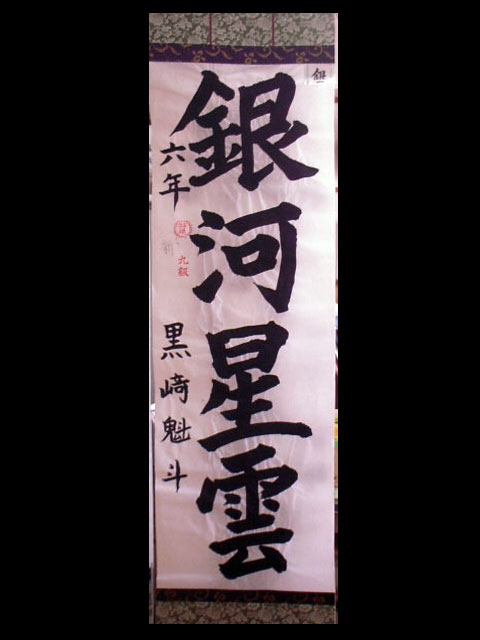 銀河星雲
六年 黒﨑魁斗
九級
銀